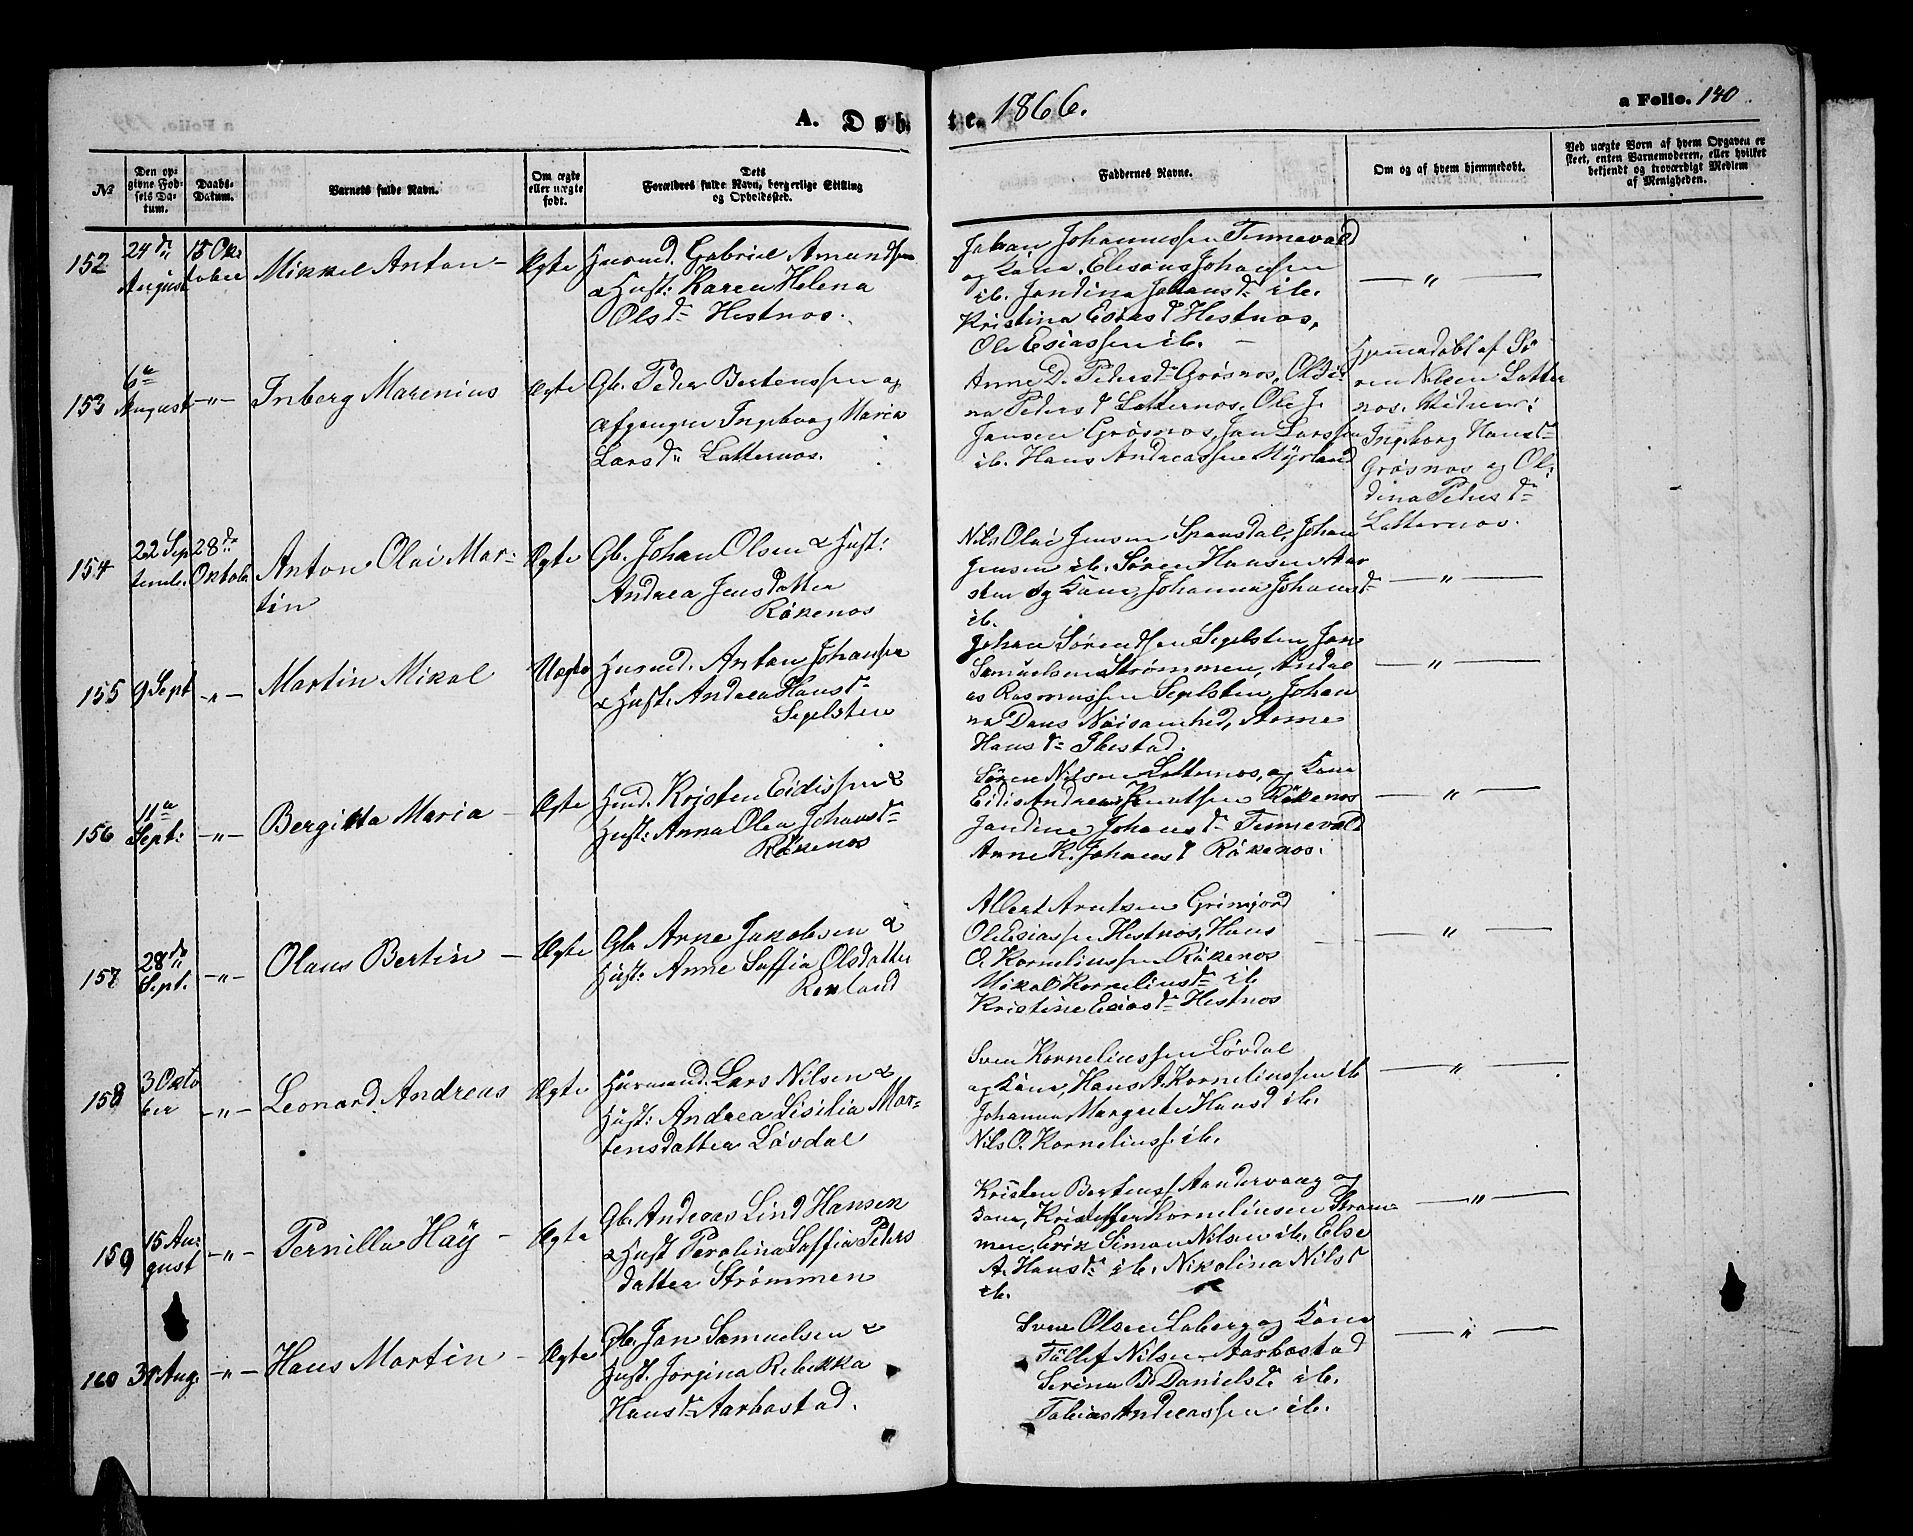 A. Døbte. 1866.
a Folio. 140
№
Den opgivne Fødsels Datum.
Daabs-Datum.
Barnets fulde Navn.
Om ægte eller uægte født.
Dets Forældres fulde Navn, borgerlige Stilling og Opholdssted.
Faddernes Navne.
Om og af hvem hjemmedøbt.
Ved uægte Børn af hvem Opgaven er skeet, enten Barnemoderen, eller hvilket bekjendt og troværdigt Medlem af Menigheden.
152
24de August
15 Oktober
Mikkel Anton –
Ægte
Huusmd. Gabriel Amundsen
& Hust: Karen Helena
Olsdr Hestnos.
Johan Johannessen Tennevald
og Kone, Elisaus Johansen
ib. Jandina Johansdr ib.
Kristina Esiasd Hestnos,
Ole Esiassen ib. –
— " —
153
6te August
– " –
Inberg Marenius
Ægte
Gb. Peder Bertenssen og
afgangne Ingeborg Maria
Larsdr Latternos.
Anne D. Pedersdr Grøsnos, Oldi-
na Pedersd Latternos, Ole J.
Jansen Grøsnos, Jan Larssen
ib. Hans Andreassen Myrland
Hjemmedøbt af Sø
ren Nilsen Latter
nos. Vidner:
Ingeborg Hansdr
Grøsnos og Ol
dina Pedersdr
Latternos.
154
22 Septembr.
28de Oktob.
Anton Olai Mar-
tin
Ægte
Gb. Johan Olsen & Hust:
Andrea Jensdatter
Røkenos
Nils Olai Jensen Spansdal, Johan
Jensen ib. Søren Hansen Aar
sten og Kone, Johanna Johansd
ib.
— " —
155
9 Sept
– " –
Martin Mikal
Uægte
Huusmd. Anton Johansen
& Hust: Andrea Hansdr
Segelsten
Johan Sørensen Segelsten, Jan
Samuelsen Strømmen, Andre
as Rasmussen Segelsten, Johan
na Dans Nøisomhed, Anne
Hansdr Ibestad.
— " —
156
11te Sept:
– " –
Bergitta Maria –
Ægte
Husmd. Kristen Eidissen &
Hust: Anna Olea Johansdr
Røkenos
Søren Nilsen Latternos, og Kone
Eidis Andreas Knutsen Røkenos
Jandine Johansdr Tennevald
Anne K. Johansd Røkenos.
— " —
157
28de Sept.
– " –
Olaus Bertin –
Ægte
Gb. Arne Jakobsen &
Hust: Anne Soffia Olsdatter
Revland
Albert Arntsen Grimjord
Ole Esiassen Hestnos, Hans
O. Korneliussen Røkenos
Mikal Korneliusdr ib
Kristine Esiasdr Hestnos
— " —
158
3 Oktober
– " –
Leonard Andreas
Ægte
Huusmand. Lars Nilsen &
Hust: Andrea Sisilia Mar-
tensdatter Løvdal
Sven Korneliussen Løvdal
og Kone, Hans A. Korneliussen ib
Johanna Margrete Hansd ib.
Nils O. Korneliuss. ib.
— " —
159
15 August
– " –
Pernilla Høy –
Ægte
Gb. Andreas Lind Hansen
& Hust Perolina Soffia Peders
datter Strømmen
Kristen Bertenss Aandervaag og
Kone, Kristoffer Kornelinsen Strøm-
men, Erik Simon Nilsen ib. Else
A. Hansdr ib. Nikolina Nilsd
ib.
— " —
160
31 Aug.
– " –
Hans Martin –
Ægte
Gb. Jan Samuelsen &
Hust. Jorgina Rebekka
Hansdr Aarbostad.
Sven Olsen Laberg og Kone
Tollef Nilsen Aarbostad
Serina B. Danielsdr ib.
Tobias Andreassen ib.
— " —